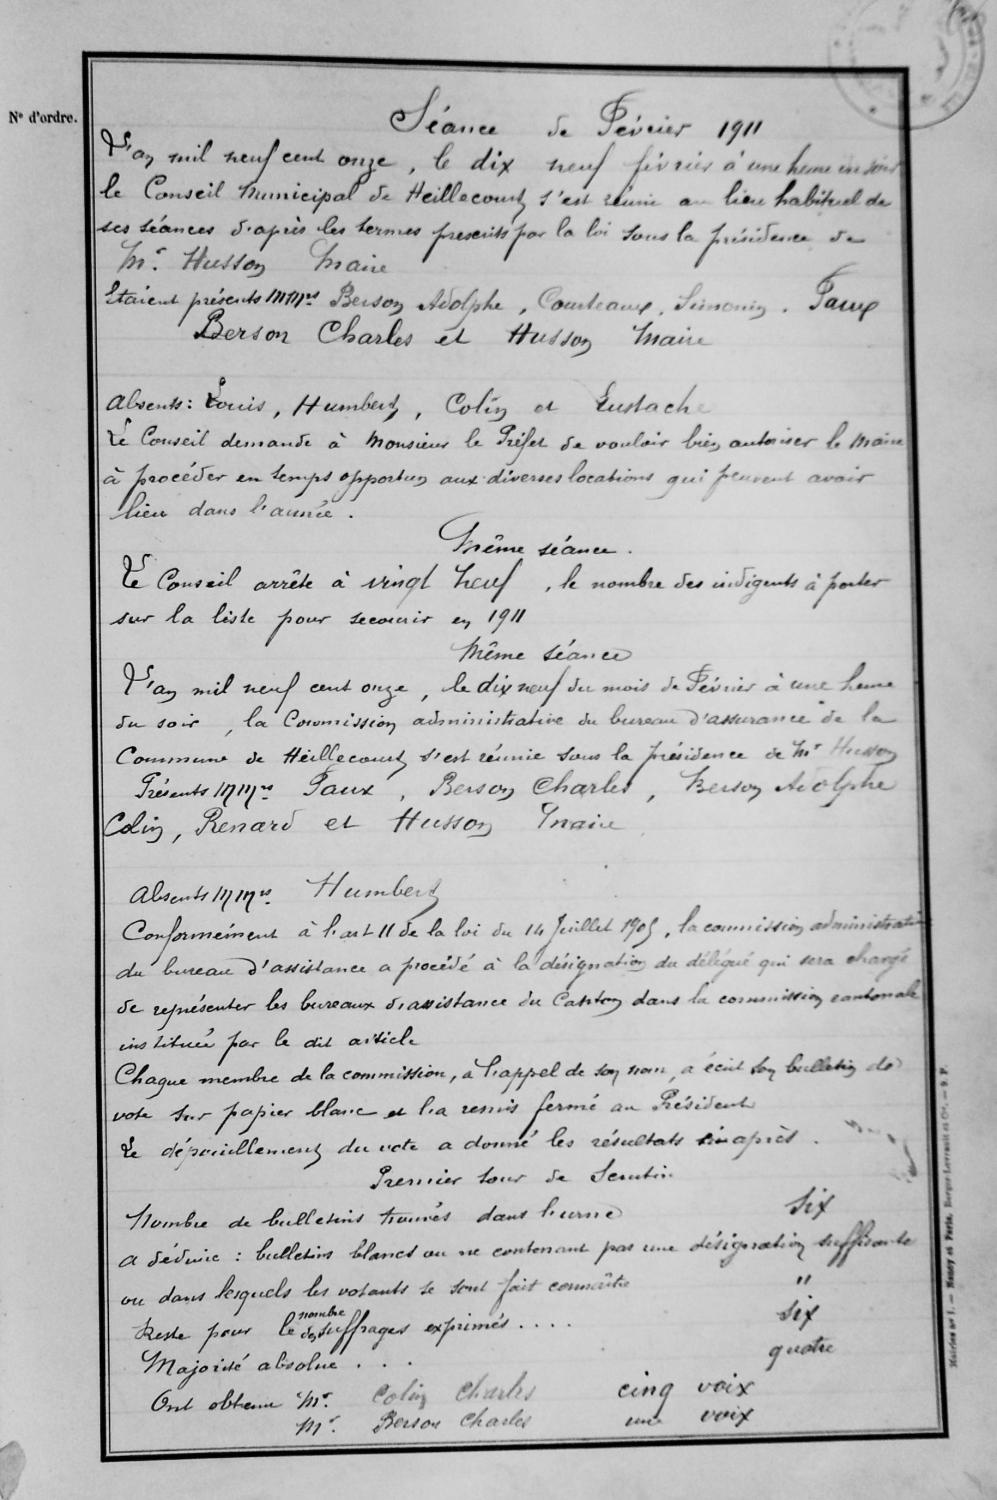 N° d'ordre.
Séance de Février 1911
L'an mil neuf cent onze, le dix neuf février à une heure du soir
le Conseil Municipal de Heillecourt s'est réuni au lieu habituel de
ses séances d'après les termes prescrits par la loi sous la présidence de
Mr. Husson Maire
Etaient présents MMrs Berson Adolphe, Courteaux, Simonin, Paux
Berson Charles et Husson Maire
Absents: Louis, Humbert, Colin et Eustache
Le Conseil demande à Monsieur le Préfet de vouloir bien autoriser le Maire
à procéder en temps opportun aux diverses locations qui peuvent avoir
lieu dans l'année.
Même séance.
Le Conseil arrête à vingt neuf, le nombre des indigents à porter
sur la liste pour secourir en 1911
Même séance
L'an mil neuf cent onze, le dix neuf du mois de Février à une heure
du soir, la Commission administrative du bureau d'assurance de la
Commune de Heillecourt s'est réunie sous la présidence de Mr Husson
Présents MMrs Paux, Berson Charles, Berson Adolphe
Colin, Renard et Husson Maire
Absents MMrs. Humbert
Conformément à l'art 11 de la loi du 14 Juillet 1905, la commission administrative
du bureau d'assistance a procédé à la désignation du délégué qui sera chargé
de représenter les bureaux d'assistance du Canton dans la commission cantonale
instituée par le dit article
Chaque membre de la commission, à l'appel de son nom, a écrit son bulletin de
vote sur papier blanc et l'a remis fermé au Président
Le dépouillement du vote a donné les résultats ci après.
Premier tour de Scrutin
Nombre de bulletins trouvés dans l'urne six
A déduire: bulletins blancs ou ne contenant pas une désignation suffisante
ou dans lesquels les votants se sont fait connaître "
Reste pour le nombre des suffrages exprimés.... six
Majorité absolue.... quatre
Ont obtenu Mr. Colin Charles cinq voix
Mr. Berson Charles une voix
Mairies n° 1. — Nancy et Paris, Berger-Levrault et Cie. — 9 P.